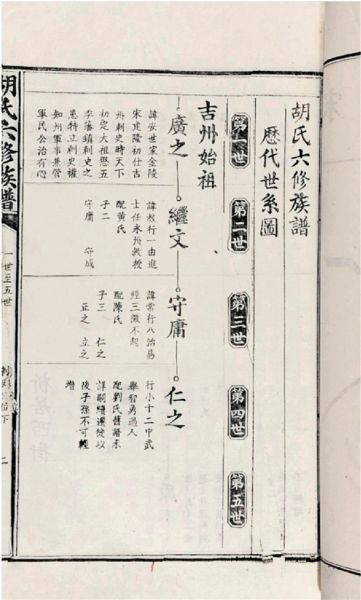 胡氏六修族譜
歷代世系圖
第一世
第二世
第三世
第四世
第五世
吉州始祖
廣之
繼文
守庸
仁之
諱安世家金陵
宋建隆初仕吉
州刺史時天下
初定大祖懲五
季藩鎮刺史之
患特立刺史權
知州軍事兼管
軍民公治有心
諱敘行一由進
士任永州教授
配黃氏
子二
守庸 守成
諱常行八治易
經三徵不起
配陳氏
子三 仁之
立之
行小十二中武
舉智勇過人
配劉氏舊譜未
詳嗣續遷徙以
後子孫不可輕
增
胡氏六修族譜
一世至五世
二